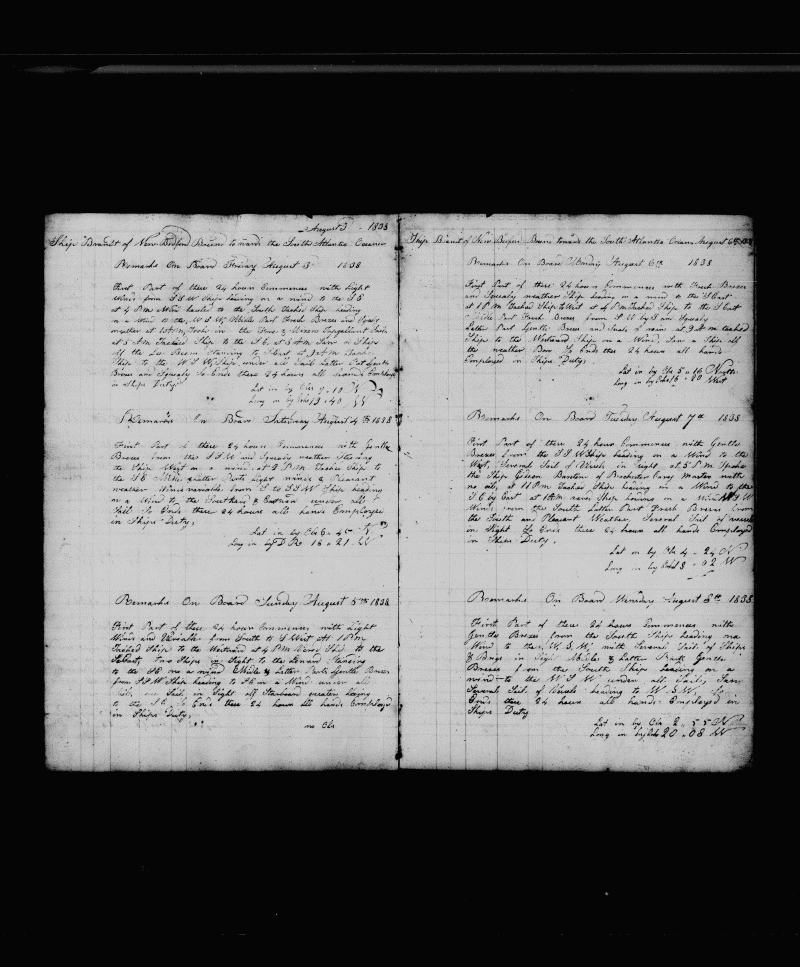 August 3 - 1838
Ship Brandt of New Bedford Bound towards the South Atlantic Ocean
Remarks On Board Friday August 3 1838
First Part of these 24 hours Commences with light
winds from S S W Ship heading on a wind to the S E
at 4 P M to the South Tacked Ship heading
on a wind to the W S W Middle Part Fresh Breeze and Squaly
weather at in the Fore & Mizen
at 3 A M Tacked Ship to the S E, at 5 A M Saw a Ship
off the Lee Beem Standing to at 9 A M Tacked
Ship to the W S W Ship under all Sail Latter Part
Breeze and Squaly So Ends these 24 hours all hands Employed
in Ships Duty
Lat in by Obs N
Long in by W
Remarks On Board Saturday August 4th 1838
First Part of these 24 hours Commences with Gentle
Breeze from the S S W and Squaly weather Steering
the Ship West on a wind at 2 P M Tacked Ship to
the S E Middle & Latter Parts light winds & Pleasant
weather Ship heading
on a Wind to the Southard & Eastward under all
Sail So Ends these 24 hours all hands Employed
in Ships Duty,
Lat in by Obs N
Long in by D R 18 - 21 W
Remarks On Board Sunday August 5th 1838
First Part of these 24 hours Commences with Light
Winds and Variable from South to S West At 1 P M
Tacked Ship to the Westward at 4 P M Ship to the
Two Ships in Sight to the Leward Standing
to the S E on a wind Middle & Latter Parts Gentle Breeze
from S S W Ship heading to S E on a Wind under all
Sail, one Sail in Sight off Starboard
to the So Ends these 24 hours all hands Employed
in Ships Duty,
no Obs
Ship Brandt of New Bedford Bound towards the South Atlantic Ocean August 6th 1838
Remarks On Board Monday August 6th 1838
First Part of these 24 hours Commences with Fresh Breeze
and Squaly weather Ship heading on a wind to the S East
at 1 P M Tacked Ship to West at 4 P M Tacked Ship to the S East
Middle Part Fresh Breeze from S W by S and Squaly
Latter Part Gentle Breeze and Squals of rain at 9 A M tacked
Ship to the Westward Ship on a Wind, Saw a Ship off
the weather Bow So Ends these 24 hours all hands
Employed in Ships Duty,
Lat in by Obs 5 - 16 North
Long in by 16 - 20 West
Remarks On Board Tuesday August 7th 1838
First Part of these 24 hours Commences with Gentle
Breeze from the S S W Ship heading on a Wind to the
West, Several Sail of Vessels in Sight, at 5 P M Spoke
the Ship Gideon Barstow of Rochester Carey Master with
no oil, at 11 P M Tacked Ship heading on a Wind to the
S E by East at 1 A M Ship heading on a Wind W S W
Wind from the South Latter Part Fresh Breeze from
the South and Pleasant Weather, Several Sail of vessels
in Sight So Ends these 24 hours all hands Employed
in Ships Duty.
Lat in by Obs 4 - 24 N
Long in by 18 - 02 W
Remarks On Board Wensday August 8th 1838
First Part of these 24 hours Commences with
Gentle Breeze from the South Ship heading on a
Wind to the W. S. W, with Several Sail of Ships
& Brigs in Sight Middle & Latter Parts Gentle
Breeze from the South Ship heading on a
wind to the W S W under all Sail, Saw
Several Sail of Vessels heading to W S W, So
Ends these 24 hours all hands Employed in
Ships Duty
Lat in by Obs 2 - 55 N
Long in by 20 - 08 W